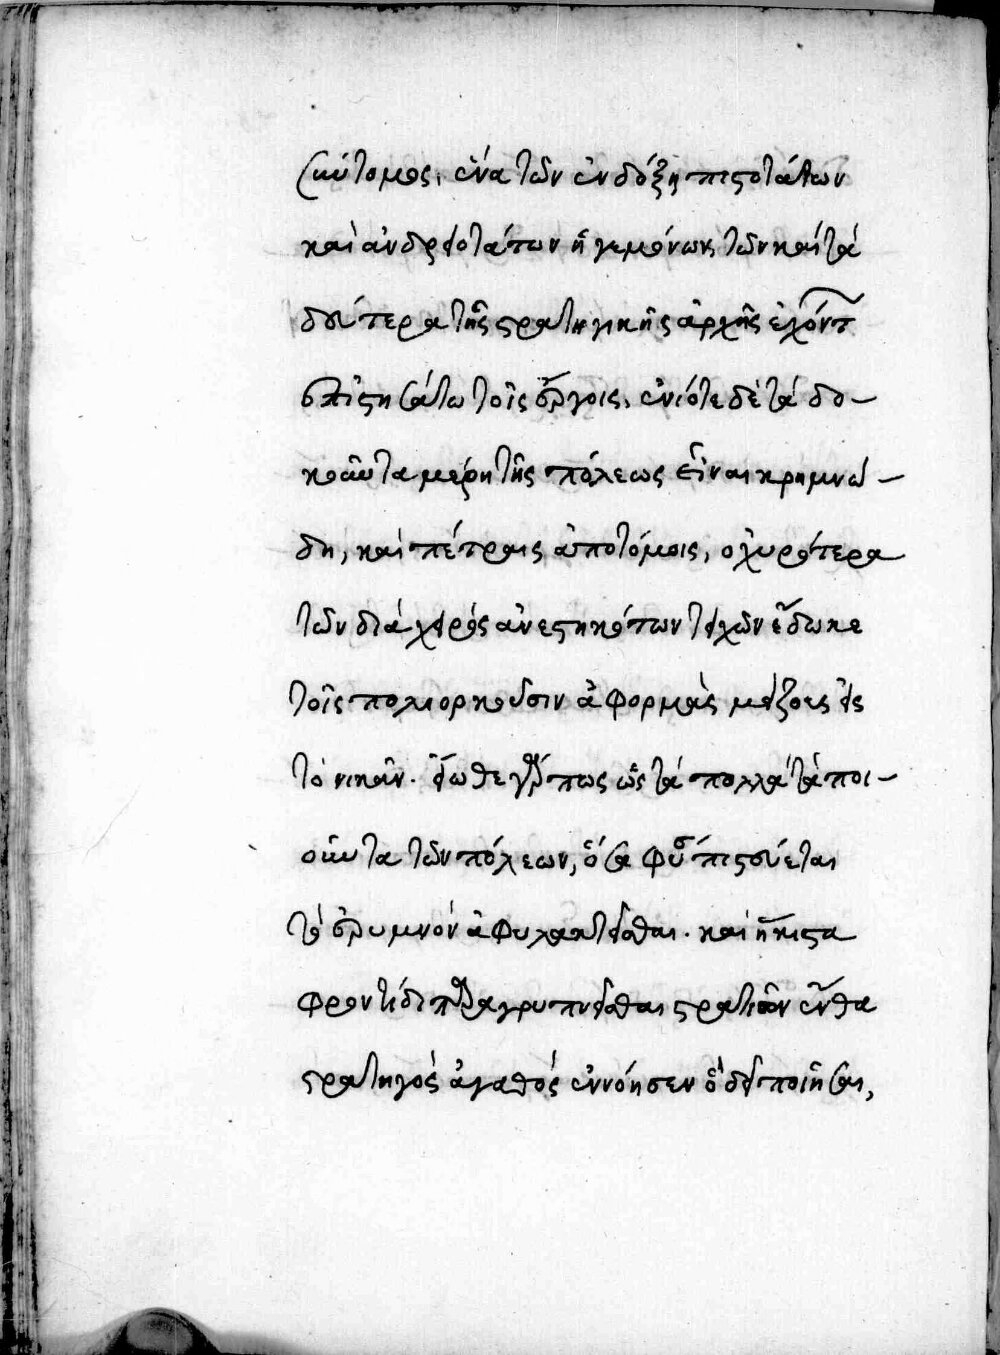 σκύτομος, ἕνα τῶν ἐν δόξῃ πιστοτάτων
καὶ ἀνδρειοτάτων ἡγεμόνων, τῶν καὶ τὰ
δεύτερα τῆς στρατηγικῆς ἀρχῆς ἐχόντ
ἐπιστησάτω τοῖς ἔργοις. ἐνίοτε δὲ τὰ δο-
κοῦντα μέρη τῆς πόλεως εἶναι κρημνώ-
δη, καὶ πέτραις ἀποτόμοις, ὀχυρώτερα
τῶν διὰ χειρὸς ἀνεστηκότων τειχῶν ἔδωκε
τοῖς πολιορκοῦσιν ἀφορμὰς μείζους εἰς
τὸ νικᾶν. εἴωθε γάρ πως ὡς τὰ πολλὰ τὰ τοι-
οῦτα τῶν πόλεων, ὅσα φύσει πιστεύεται
τὸ ἐρυμνὸν ἀφυλακτεῖσθαι. καὶ ἥκιστα
φροντίδι παραγρυπνεῖσθαι στρατιῶν ἔνθα
στρατηγὸς ἀγαθὸς ἐννόησεν ὃ δεῖ ποιῆσαι,